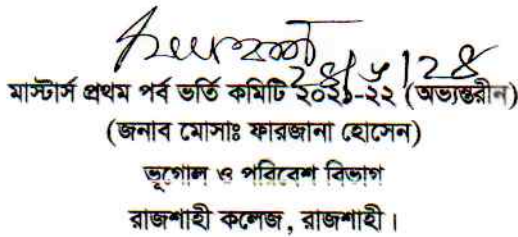 মাস্টার্স প্রথম পর্ব ভর্তি কমিটি ২০২১-২২ (অভ্যন্তরীন)
(জনাব মোসাঃ ফারজানা হোসেন)
ভূগোল ও পরিবেশ বিভাগ
রাজশাহী কলেজ, রাজশাহী।